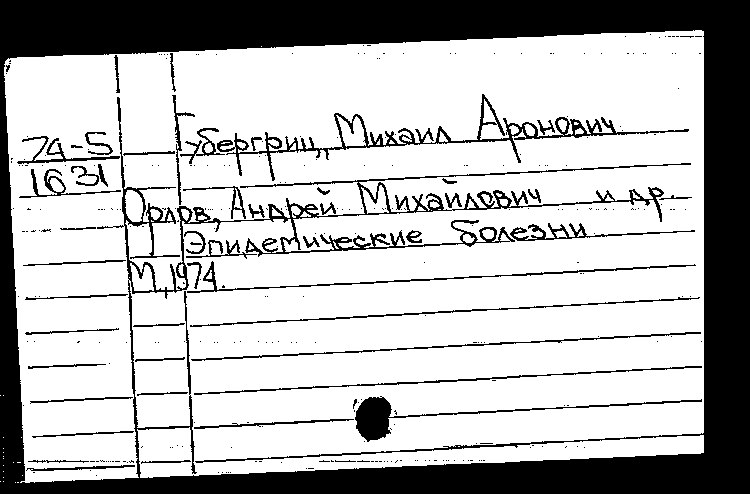 74-5
1631
Губергриц, Михаил Аронович
Орлов, Андрей Михайлович и др.
Эпидемические болезни
М., 1974.